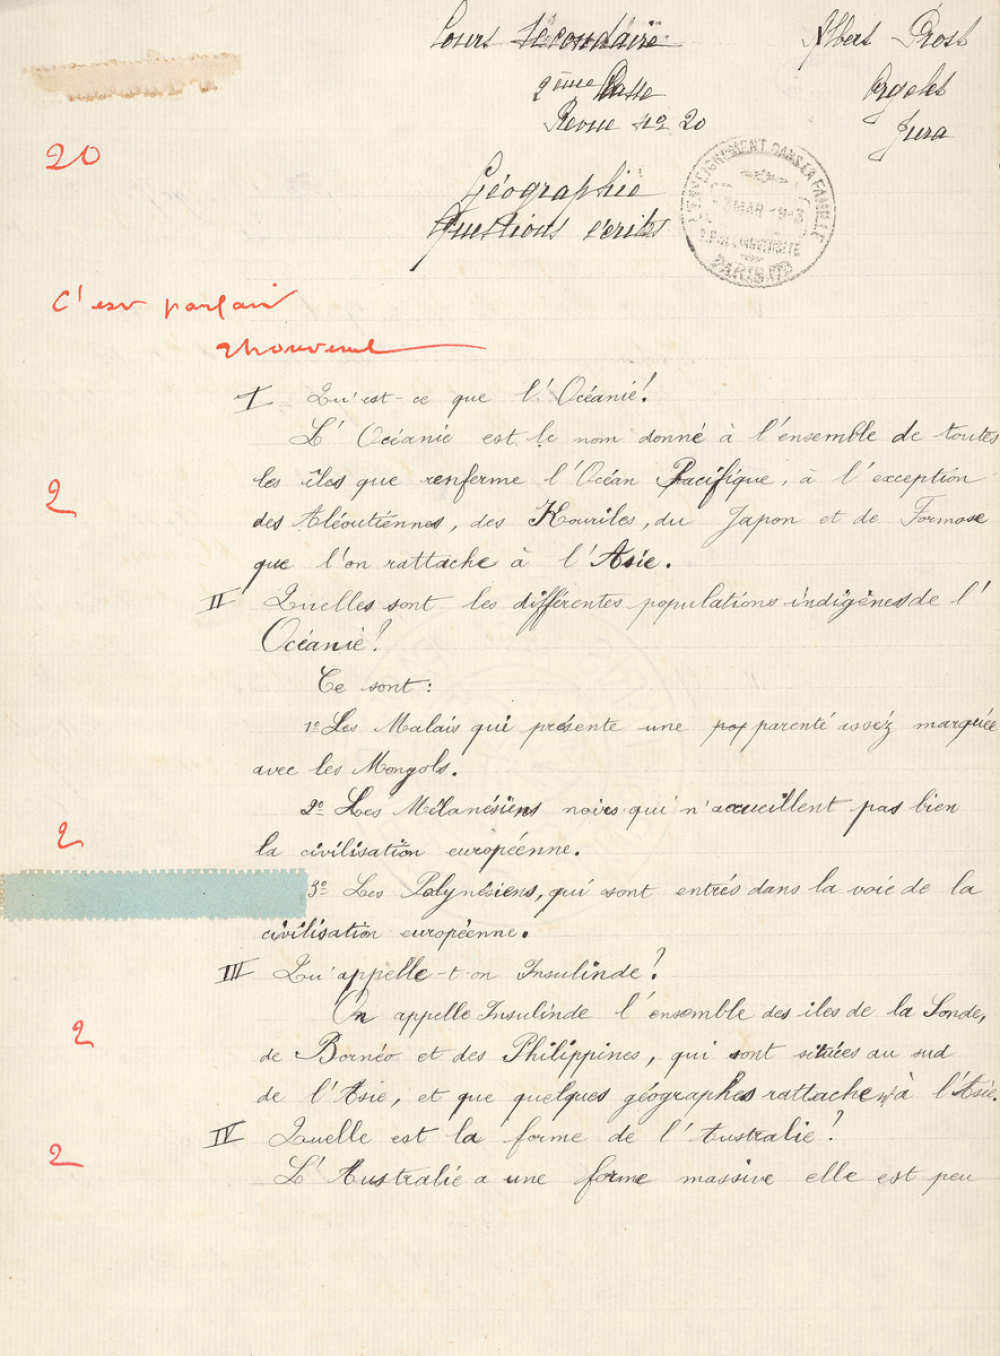 Cours Secondaire
Albert Prost
2ème Classe
Orgelet
Revue No 20
Jura
20
Géographie
Questions écrites
L'ENSEIGNEMENT DANS LA FAMILLE
MAR
R. DE L'UNIVERSITÉ
PARIS (7e)
C'est parfait
I Qu'est-ce que l'Océanie?
L'Océanie est le nom donné à l'ensemble de toutes
les îles que renferme l'Océan Pacifique, à l'exception
2
des Aléoutiennes, des Kouriles, du Japon et de Formose
que l'on rattache à l'Asie.
II Quelles sont les différentes populations indigènes de l'
Océanie?
Ce sont:
1º Les Malais qui présente une pop parenté assez marquée
avec les Mongols.
2º Les Mélanésiens noirs qui n'accueillent pas bien
2
la civilisation européenne.
3º Les Polynésiens, qui sont entrés dans la voie de la
civilisation européenne.
III Qu'appelle-t-on Insulinde?
On appelle Insulinde l'ensemble des iles de la Sonde,
2
de Bornéo et des Philippines, qui sont situées au sud
de l'Asie, et que quelques géographes rattachent à l'Asie.
IV Quelle est la forme de l'Australie?
2
L'Australie a une forme massive elle est peu